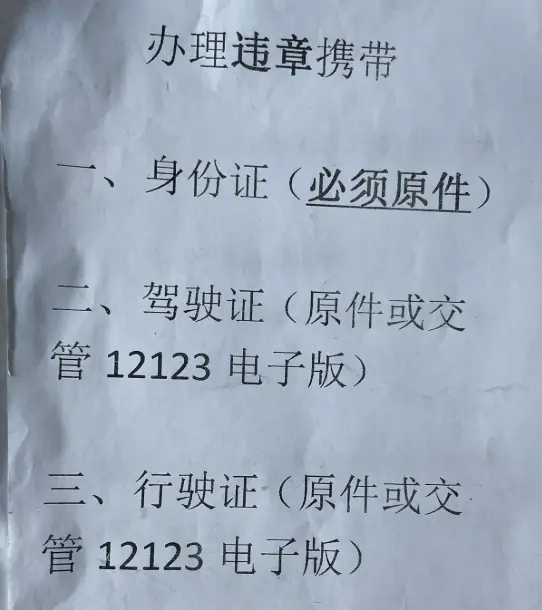 办理违章携带
一、身份证（必须原件）
二、驾驶证（原件或交
管 12123 电子版）
三、行驶证（原件或交
管 12123 电子版）